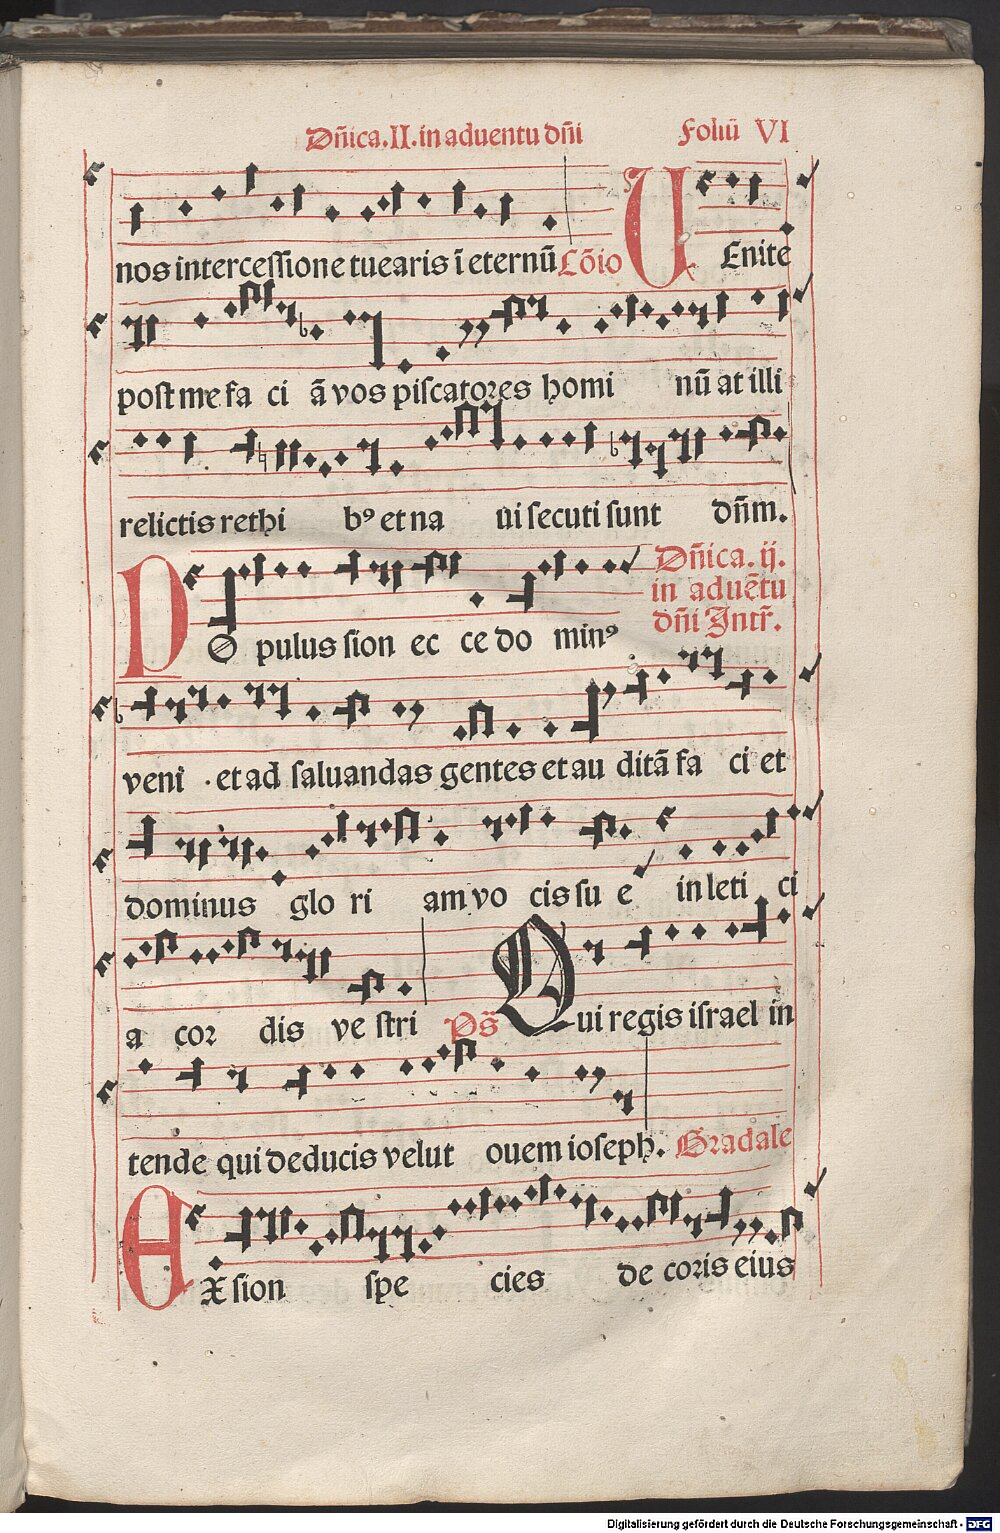 Dn̄ica.II.in aduentu dn̄i Foliū VI
nos intercessione tuearis ī eternū Cōio VEnite
post me fa ci ā vos piscatores homi nū at illi
relictis rethi bꝰ et na ui secuti sunt dn̄m.
POpulus sion ec ce do minꝰ Dn̄ica. ij.
in aduētu
dn̄i Intr̄.
veni et ad saluandas gentes et au ditā fa ci et
dominus glo ri am vo cis su e in leti ci
a cor dis ve stri Ps̄ Qui regis israel in
tende qui deducis velut ouem ioseph. Gradale
EX sion spe cies de coris eius
Digitalisierung gefördert durch die Deutsche Forschungsgemeinschaft - DFG